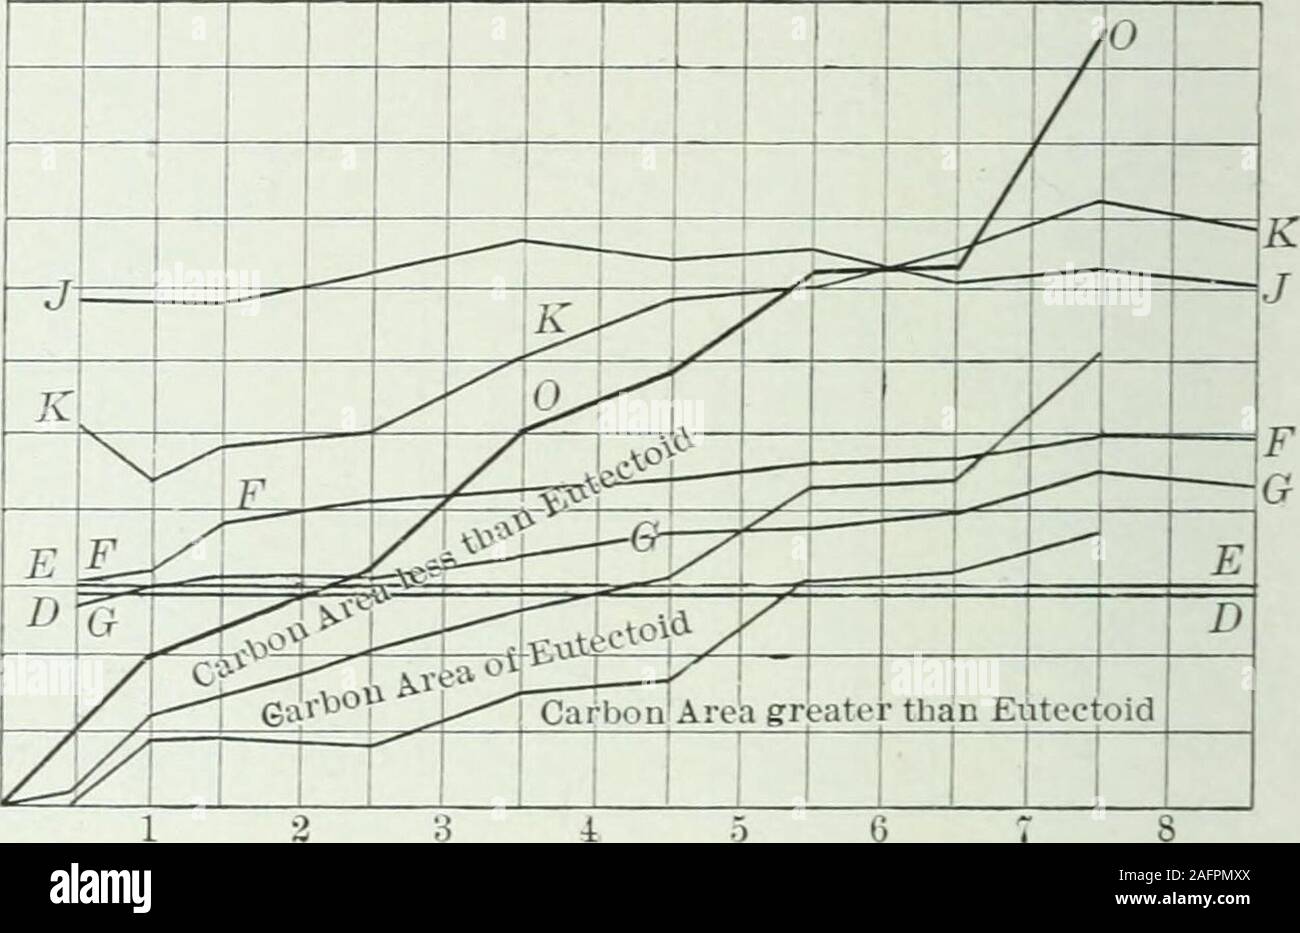 O
K
J
J
K
K
O
F
F
G
E
F
G
E
D
G
E
D
Carbon Area less than Eutectoid
Carbon Area of Eutectoid
Carbon Area greater than Eutectoid
1 2 3 4 5 6 7 8
alamy
Image ID: 2AFPMXX
www.alamy.com